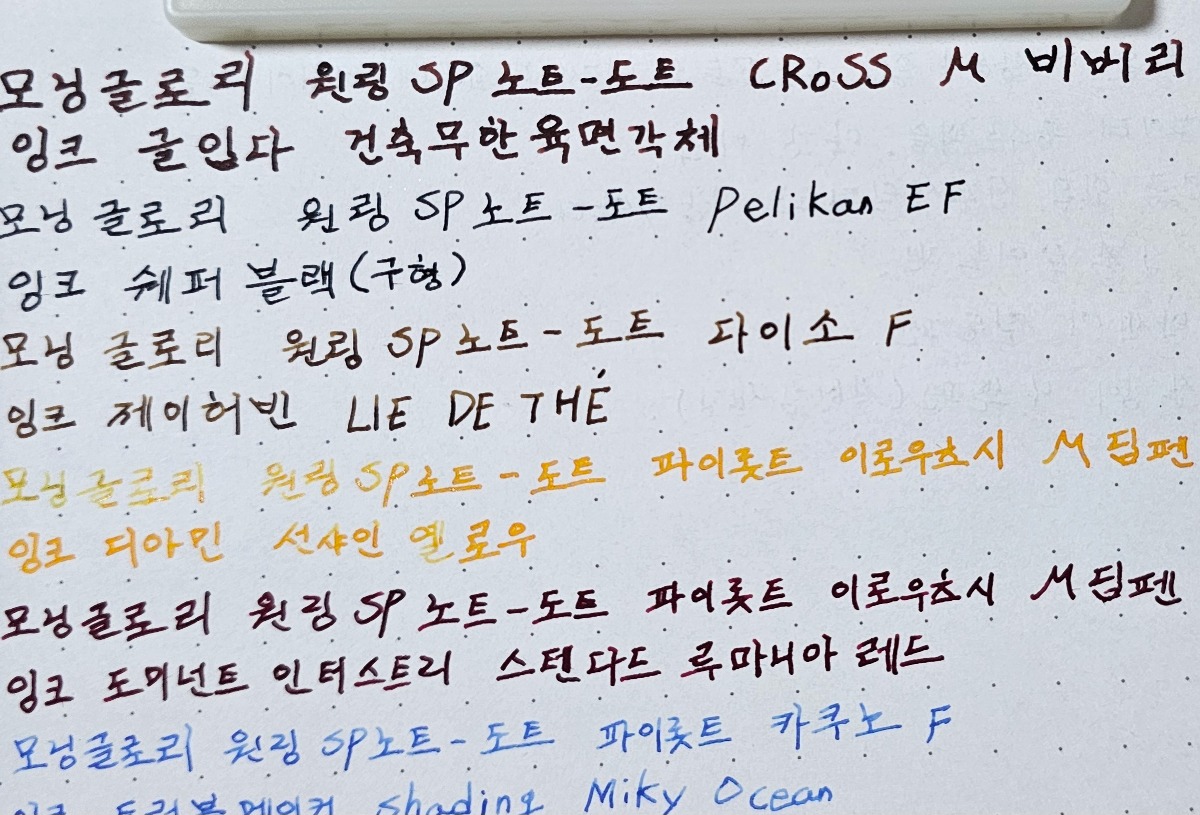 모닝글로리 원링 SP 노트-도트 CRoSS M 비버리
잉크 글입다 건축무한육면각체
모닝글로리 원링 SP노트-도트 Pelikan EF
잉크 쉐퍼 블랙(구형)
모닝 글로리 원링 SP노트-도트 다이소 F
잉크 제이허빈 LIE DE THÉ
모닝글로리 원링 SP노트-도트 파이롯트 이로우츠시 M 딥펜
잉크 디아민 선샤인 옐로우
모닝글로리 원링 SP 노트-도트 파이롯트 이로우츠시 M 딥펜
잉크 도미넌트 인더스트리 스텐다드 루마니아 레드
모닝글로리 원링 SP노트-도트 파이롯트 카쿠노 F
잉크 shading Miky Ocean